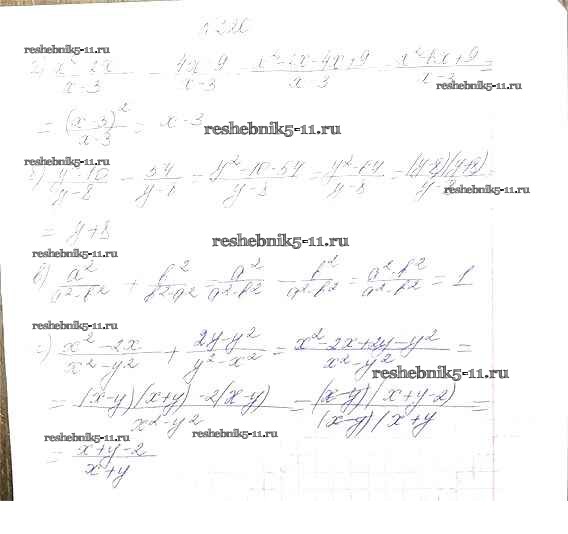 reshebnik5-11.ru
а) (x² - 2x)/(x-3) - (4x-9)/(x-3) = (x²-2x-4x+9)/(x-3) = (x²-6x+9)/(x-3) =
reshebnik5-11.ru reshebnik5-11.ru
= (x-3)²/(x-3) = x-3
reshebnik5-11.ru
reshebnik5-11.ru
б) (y²-10)/(y-8) - 54/(y-8) = (y²-10-54)/(y-8) = (y²-64)/(y-8) = (y-8)(y+8)/(y-8) =
reshebnik5-11.ru
= y+8
reshebnik5-11.ru
reshebnik5-11.ru
в) a²/(a²-b²) + b²/(b²-a²) = a²/(a²-b²) - b²/(a²-b²) = (a²-b²)/(a²-b²) = 1
reshebnik5-11.ru
г) (x²-2x)/(x²-y²) + (2y-y²)/(y²-x²) = (x²-2x+2y-y²)/(x²-y²) =
reshebnik5-11.ru
= ((x-y)(x+y)-2(x-y))/(x²-y²) = (x-y)(x+y-2)/(x-y)(x+y =
reshebnik5-11.ru reshebnik5-11.ru
= (x+y-2)/(x+y)